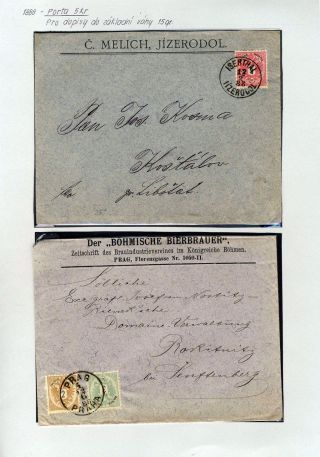 1888 - Porta 5 kr
Pro dopisy do základní váhy 15 gr.
Č. MELICH, JÍZERODOL.
ISERTHAL
JÍZERODOL
Pan Jos Kosma
Košťálov
Der „BÖHMISCHE BIERBRAUER",
Zeitschrift des Brauindustrievereines im Königreiche Böhmen.
PRAG, Florenzgasse Nr. 1060-II.
Löbliche
Domaine-Verwaltung
Rokitnitz
bei Senftenberg
PRAG
PRAHA